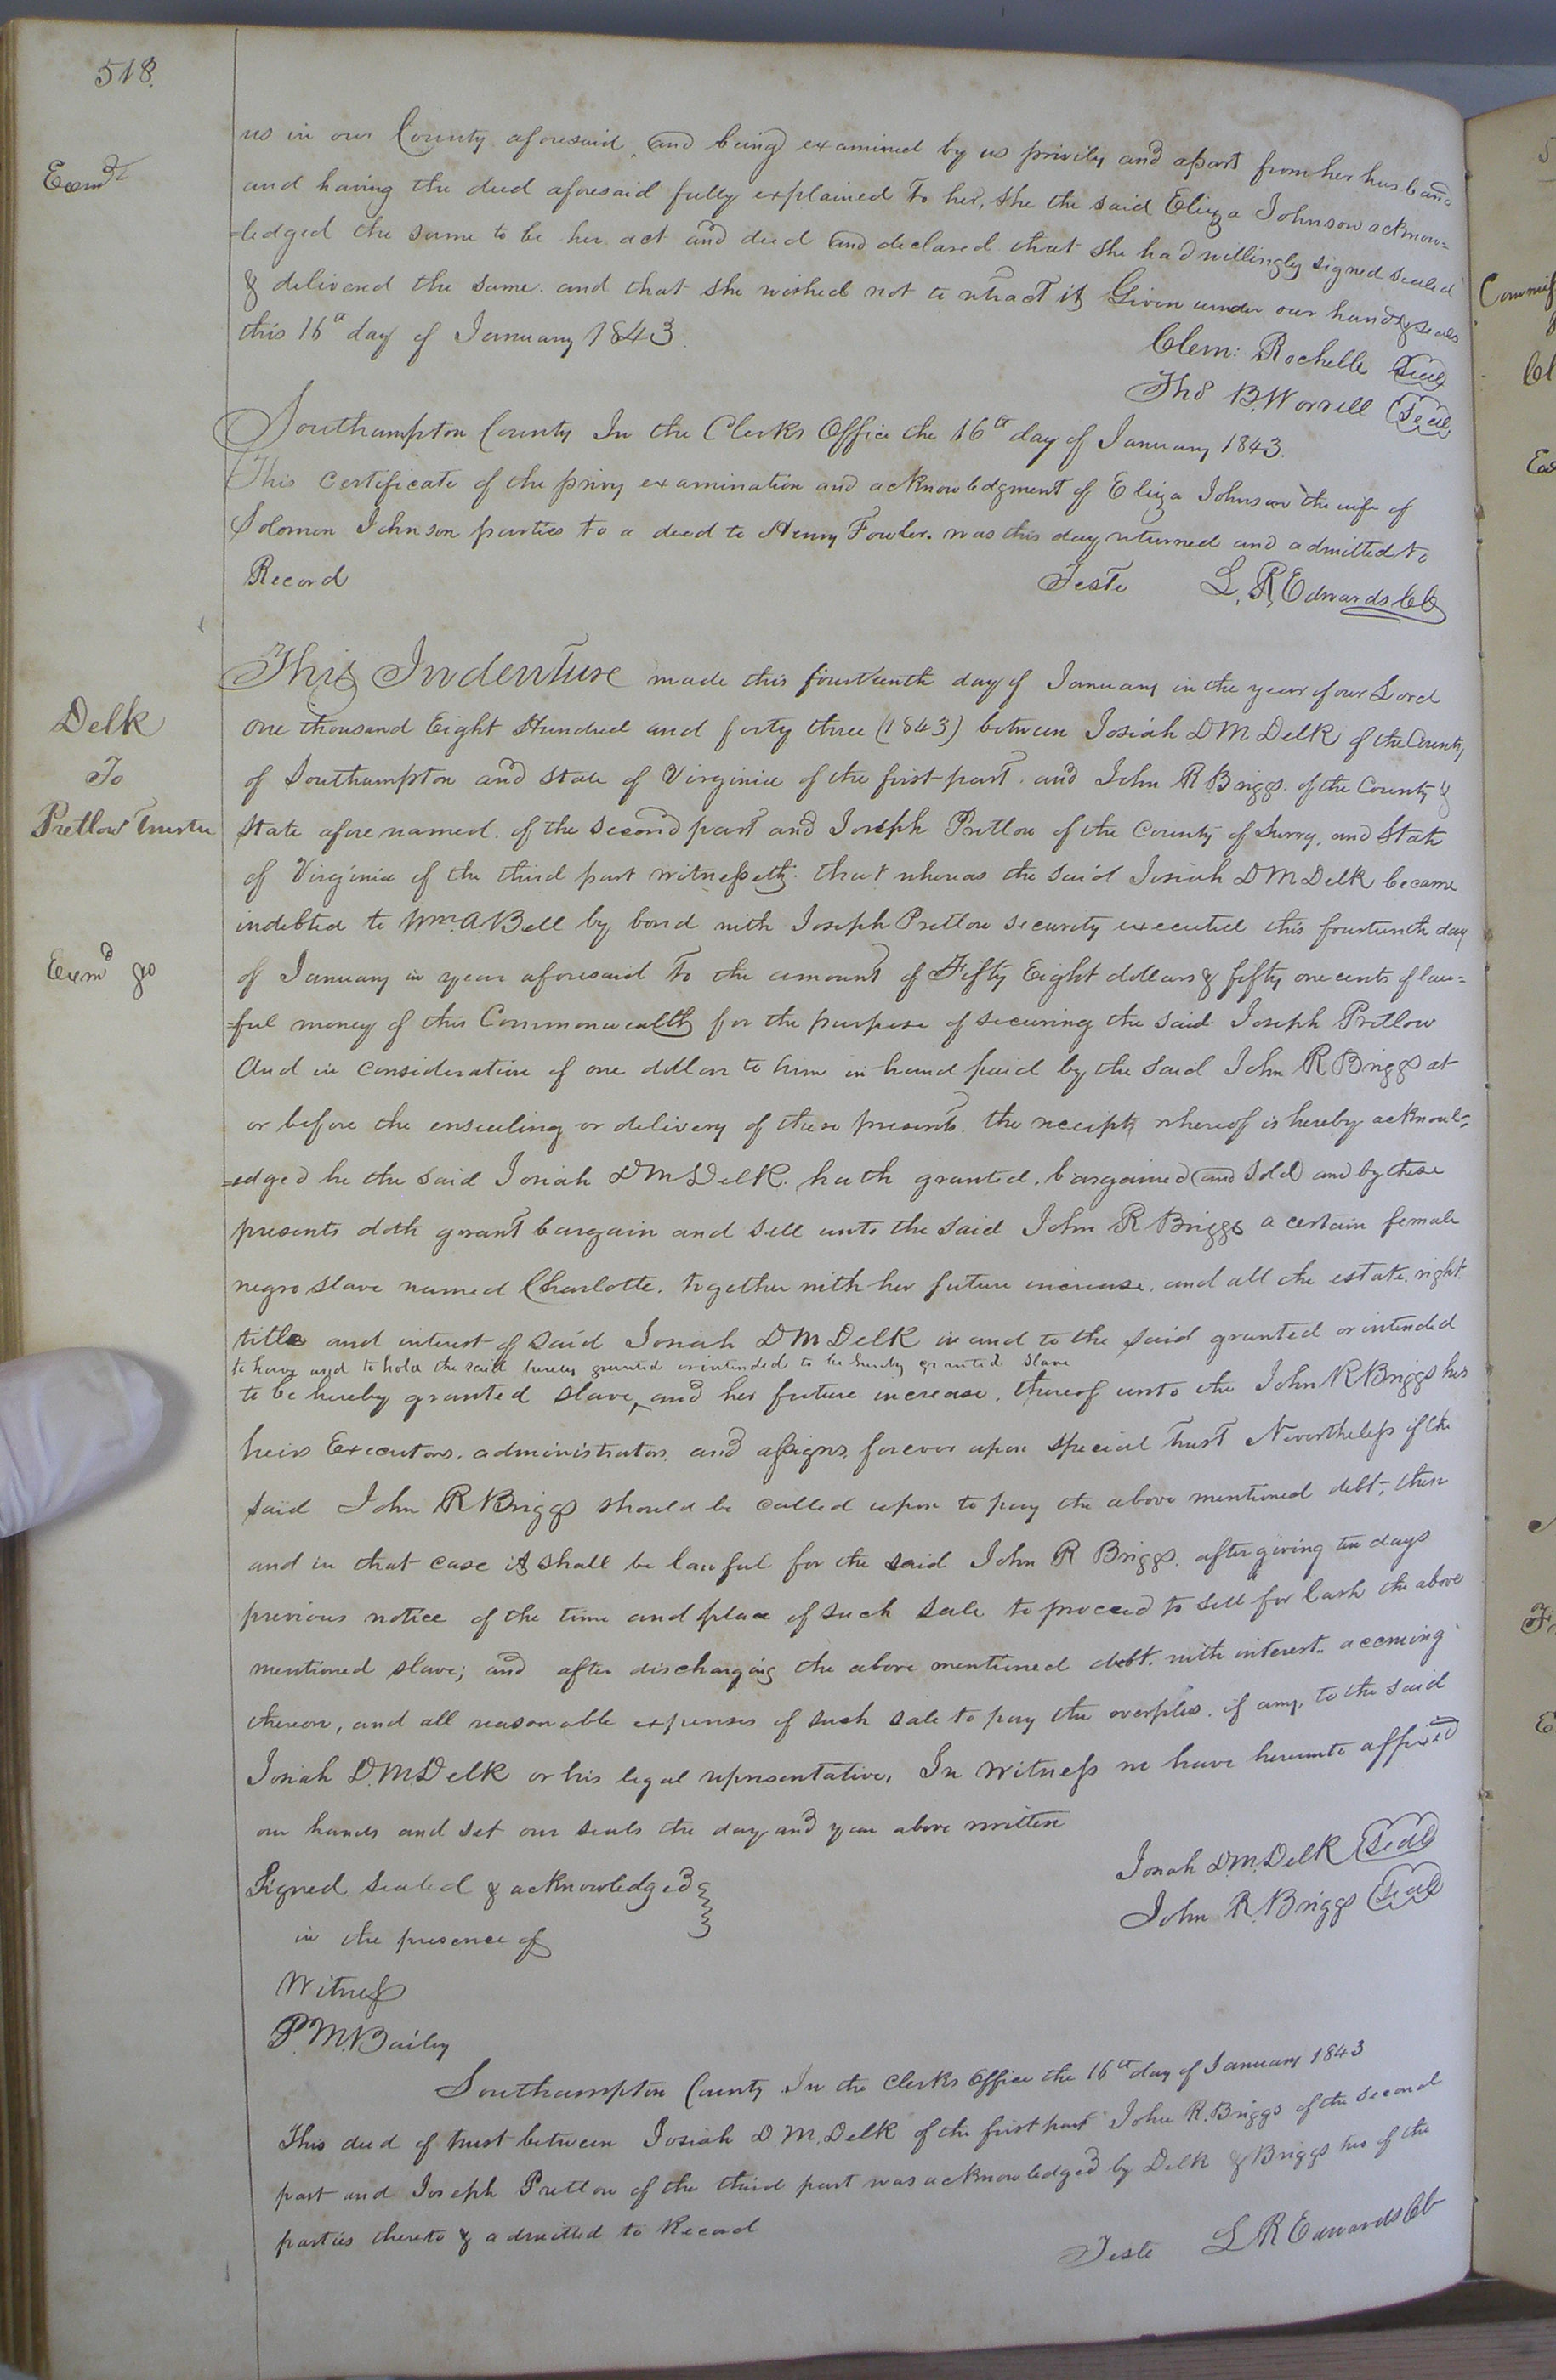 518.
us in our County aforesaid, and being examined by us privily and apart from her husband
Exmd
and having the deed aforesaid fully explained to her, she the said Eliza Johnson acknow=
=ledged the same to be her act and deed and declared that she had willingly signed sealed
& delivered the same. and that she wished not to retract it Given under our hands & seals
this 16th day of January 1843.
Clem: Rochelle Seal
Thos B. Worrell Seal
Southampton County In the Clerks Office the 16th day of January 1843.
This Certificate of the privy examination and acknowledgment of Eliza Johnson the wife of
Solomon Johnson parties to a deed to Henry Fowler. was this day returned and admitted to
Record
Teste L. R. Edwards Clk
This Indenture made this fourteenth day of January in the year of our Lord
Delk
To
Pretlow Trustee
one thousand Eight Hundred and forty three (1843) between Josiah D M Delk of the County
of Southampton and State of Virginia of the first part. and John R Briggs. of the County &
State afore named. of the Second part and Joseph Pretlow of the County of Surry, and State
of Virginia of the third part witnesseth. that whereas the said Josiah D M Delk became
indebted to Wm. A. Bell by bond with Joseph Pretlow security executed this fourteenth day
Exmd
of January in year aforesaid to the amount of Fifty Eight dollars & fifty one cents of law=
=ful money of this Commonwealth for the purpose of securing the said Joseph Pretlow
And in consideration of one dollar to him in hand paid by the said John R Briggs at
or before the ensealing or delivery of these presents. the receipt whereof is hereby acknowl=
=edged he the said Josiah D M Delk. hath granted. bargained and sold and by these
presents doth grant bargain and sell unto the said John R Briggs a certain female
negro slave named Charlotte. together with her future increase. and all the estate. right.
title and interest of said Josiah D. M Delk in and to the said granted or intended
to have and to hold the said hereby granted or intended to be hereby granted slave
to be hereby granted slave, and her future increase. thereof unto the John R Briggs his
heirs Executors. administrators. and assigns. forever upon special trust Nevertheless if the
said John R Briggs should be called upon to pay the above mentioned debt, then
and in that case it shall be lawful for the said John R Briggs. after giving ten days
previous notice of the time and place of such sale to proceed to sell for Cash the above
mentioned slave; and after discharging the above mentioned debt. with interest. accruing
thereon, and all reasonable expenses of such sale to pay the overplus. if any, to the said
Josiah D. M Delk or his legal representative. In Witness we have hereunto affixed
our hands and set our seals the day and year above written
Josiah D. M. Delk Seal
John R. Briggs Seal
Signed Sealed & acknowledged
in the presence of
Witness
P. M. Bailey
Southampton County In the Clerks Office the 16th day of January 1843
This deed of trust between Josiah D. M. Delk of the first part John R. Briggs of the second
part and Joseph Pretlow of the third part was acknowledged by Delk & Briggs two of the
parties thereto & admitted to Record
Teste L R Edwards Clk